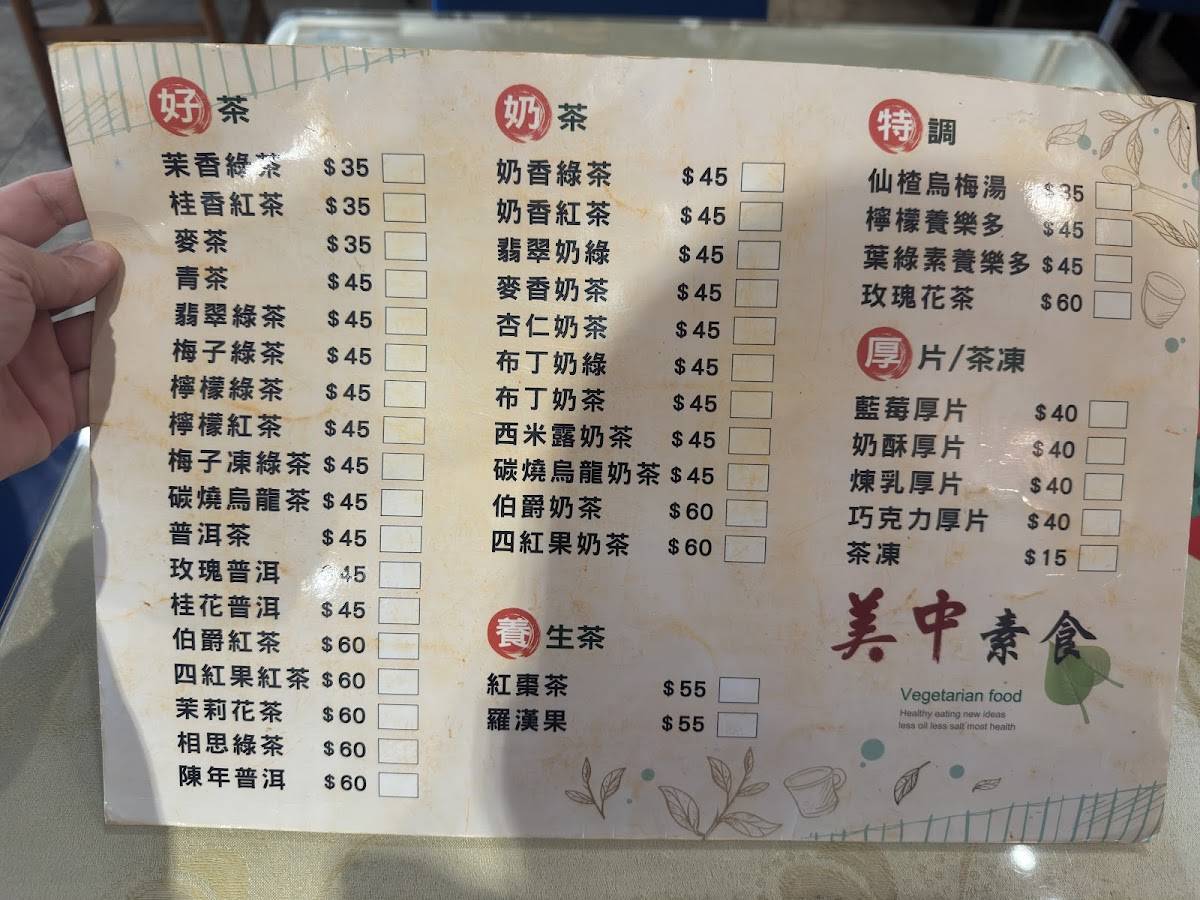 好茶
茉香綠茶 $35
桂香紅茶 $35
麥茶 $35
青茶 $45
翡翠綠茶 $45
梅子綠茶 $45
檸檬綠茶 $45
檸檬紅茶 $45
梅子凍綠茶 $45
碳燒烏龍茶 $45
普洱茶 $45
玫瑰普洱 45
桂花普洱 $45
伯爵紅茶 $60
四紅果紅茶 $60
茉莉花茶 $60
相思綠茶 $60
陳年普洱 $60
奶茶
奶香綠茶 $45
奶香紅茶 $45
翡翠奶綠 $45
麥香奶茶 $45
杏仁奶茶 $45
布丁奶綠 $45
布丁奶茶 $45
西米露奶茶 $45
碳燒烏龍奶茶 $45
伯爵奶茶 $60
四紅果奶茶 $60
養生茶
紅棗茶 $55
羅漢果 $55
特調
仙楂烏梅湯 $35
檸檬養樂多 $45
葉綠素養樂多 $45
玫瑰花茶 $60
厚片/茶凍
藍莓厚片 $40
奶酥厚片 $40
煉乳厚片 $40
巧克力厚片 $40
茶凍 $15
美中素食
Vegetarian food
Healthy eating new ideas
less oil less salt most health